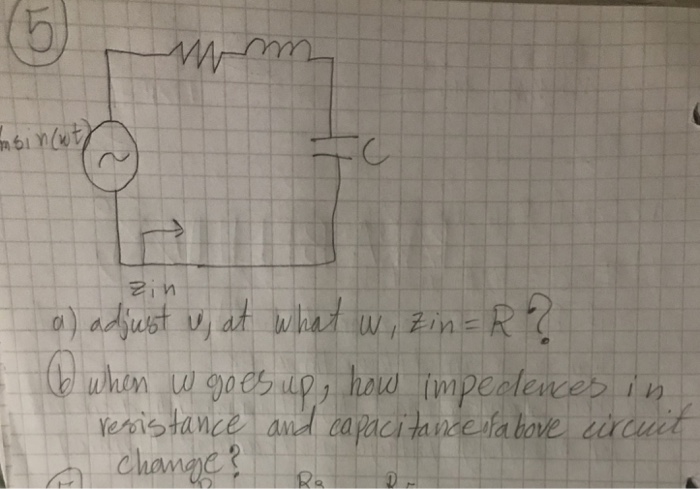 5
msin(wt)
C
Zin
a) adjust w, at what w, Zin = R?
b) when w goes up, how impedences in
resistance and capacitance of above circuit
change?